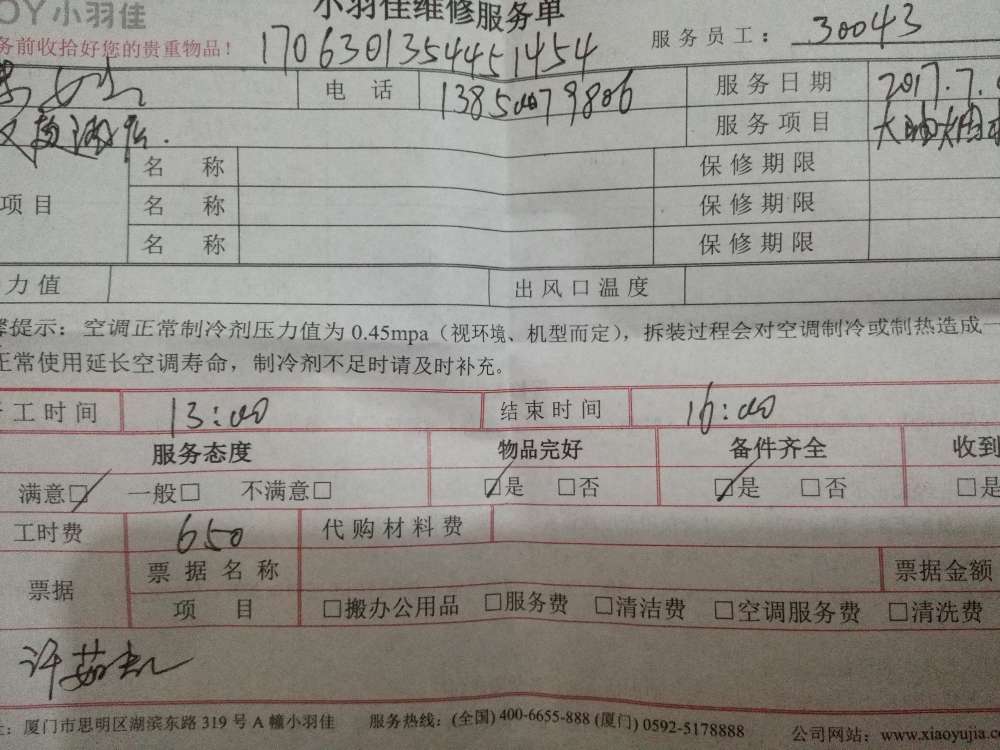 OY小羽佳
小羽佳维修服务单
务前收拾好您的贵重物品！
1706301354451454
服务员工： 30043
女士 电话 服务日期 2017.7.
服务项目
名称 保修期限
项目 名称 保修期限
名称 保修期限
力值 出风口温度
提示：空调正常制冷剂压力值为 0.45mpa（视环境、机型而定），拆装过程会对空调制冷或制热造成一
正常使用延长空调寿命，制冷剂不足时请及时补充。
工时间 13:00 结束时间 16:00
服务态度 物品完好 备件齐全 收到
满意□ 一般□ 不满意□ □是 □否 □是 □否 □是
工时费 650 代购材料费
票据 票据名称 票据金额
项目 □搬办公用品 □服务费 □清洁费 □空调服务费 □清洗费
许茹
：厦门市思明区湖滨东路 319 号 A 幢小羽佳 服务热线：(全国) 400-6655-888 (厦门) 0592-5178888 公司网站：www.xiaoyujia.co